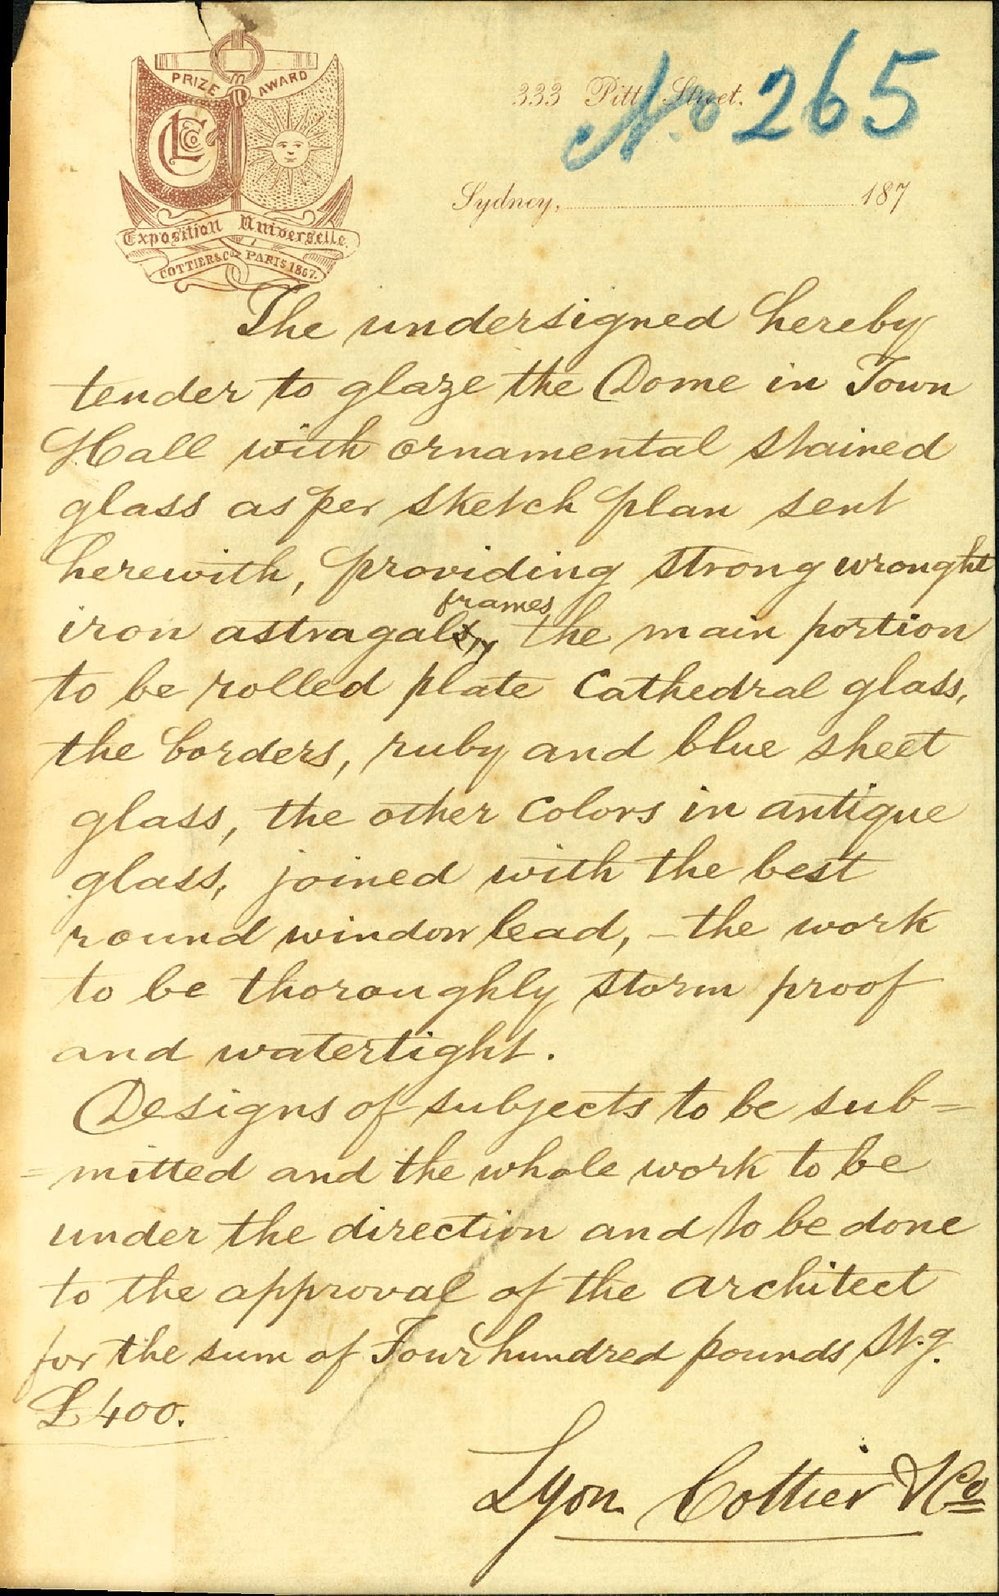 PRIZE AWARD
LCCo
Exposition Universelle.
COTTIER & Co PARIS 1867.
333 Pitt Street.
No 265
Sydney, 187
The undersigned hereby
tender to glaze the Dome in Town
Hall with ornamental stained
glass as per sketch plan sent
herewith, providing strong wrought
iron astragals,, frames the main portion
to be rolled plate Cathedral glass,
the borders, ruby and blue sheet
glass, the other colors in antique
glass, joined with the best
round window lead, – the work
to be thoroughly storm proof
and watertight.
Designs of subjects to be sub=
=mitted and the whole work to be
under the direction and to be done
to the approval of the architect
for the sum of Four hundred pounds St.g.
£400.
Lyon Cottier & Co